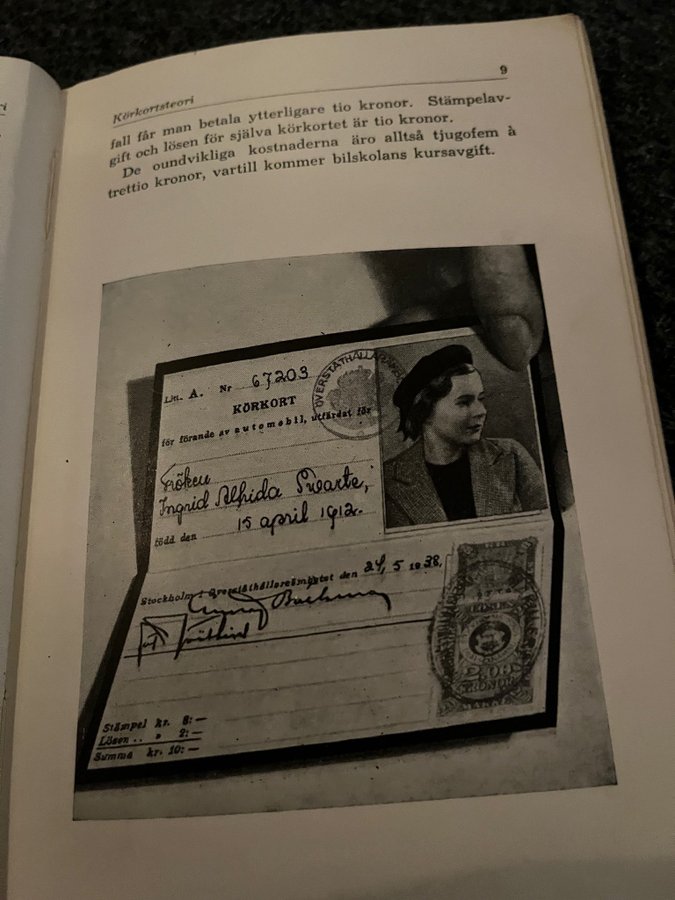 Körkortsteori 9
fall får man betala ytterligare tio kronor. Stämpelav-
gift och lösen för själva körkortet är tio kronor.
De oundvikliga kostnaderna äro alltså tjugofem à
trettio kronor, vartill kommer bilskolans kursavgift.
Litt. A. Nr 67203
KÖRKORT
för förande av automobil, utfärdat för
Fröken
Ingrid Alfrida Swarte,
född den 15 april 1912.
Stockholm i Överståthållareämbetet den 24/5 1938.
Stämpel kr. 8:—
Lösen .. » 2:—
Summa kr. 10:—
KRONOR